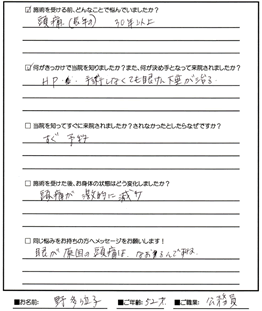 ☑施術を受ける前、どんなことで悩んでいましたか？
頭痛 30年以上
☑何がきっかけで当院を知りましたか？また、何が決め手となって来院されましたか？
HP 手術しなくても眼けん下垂が治る
□当院を知ってすぐに来院されましたか？されなかったとしたらなぜですか？
すぐ予約
□施術を受けた後、お身体の状態はどう変化しましたか？
頭痛が激的に減少
□同じ悩みをお持ちの方へメッセージをお願いします！
眼が原因の頭痛は、なおるんですね
■お名前: ■ご年齢: 52才 ■ご職業: 公務員